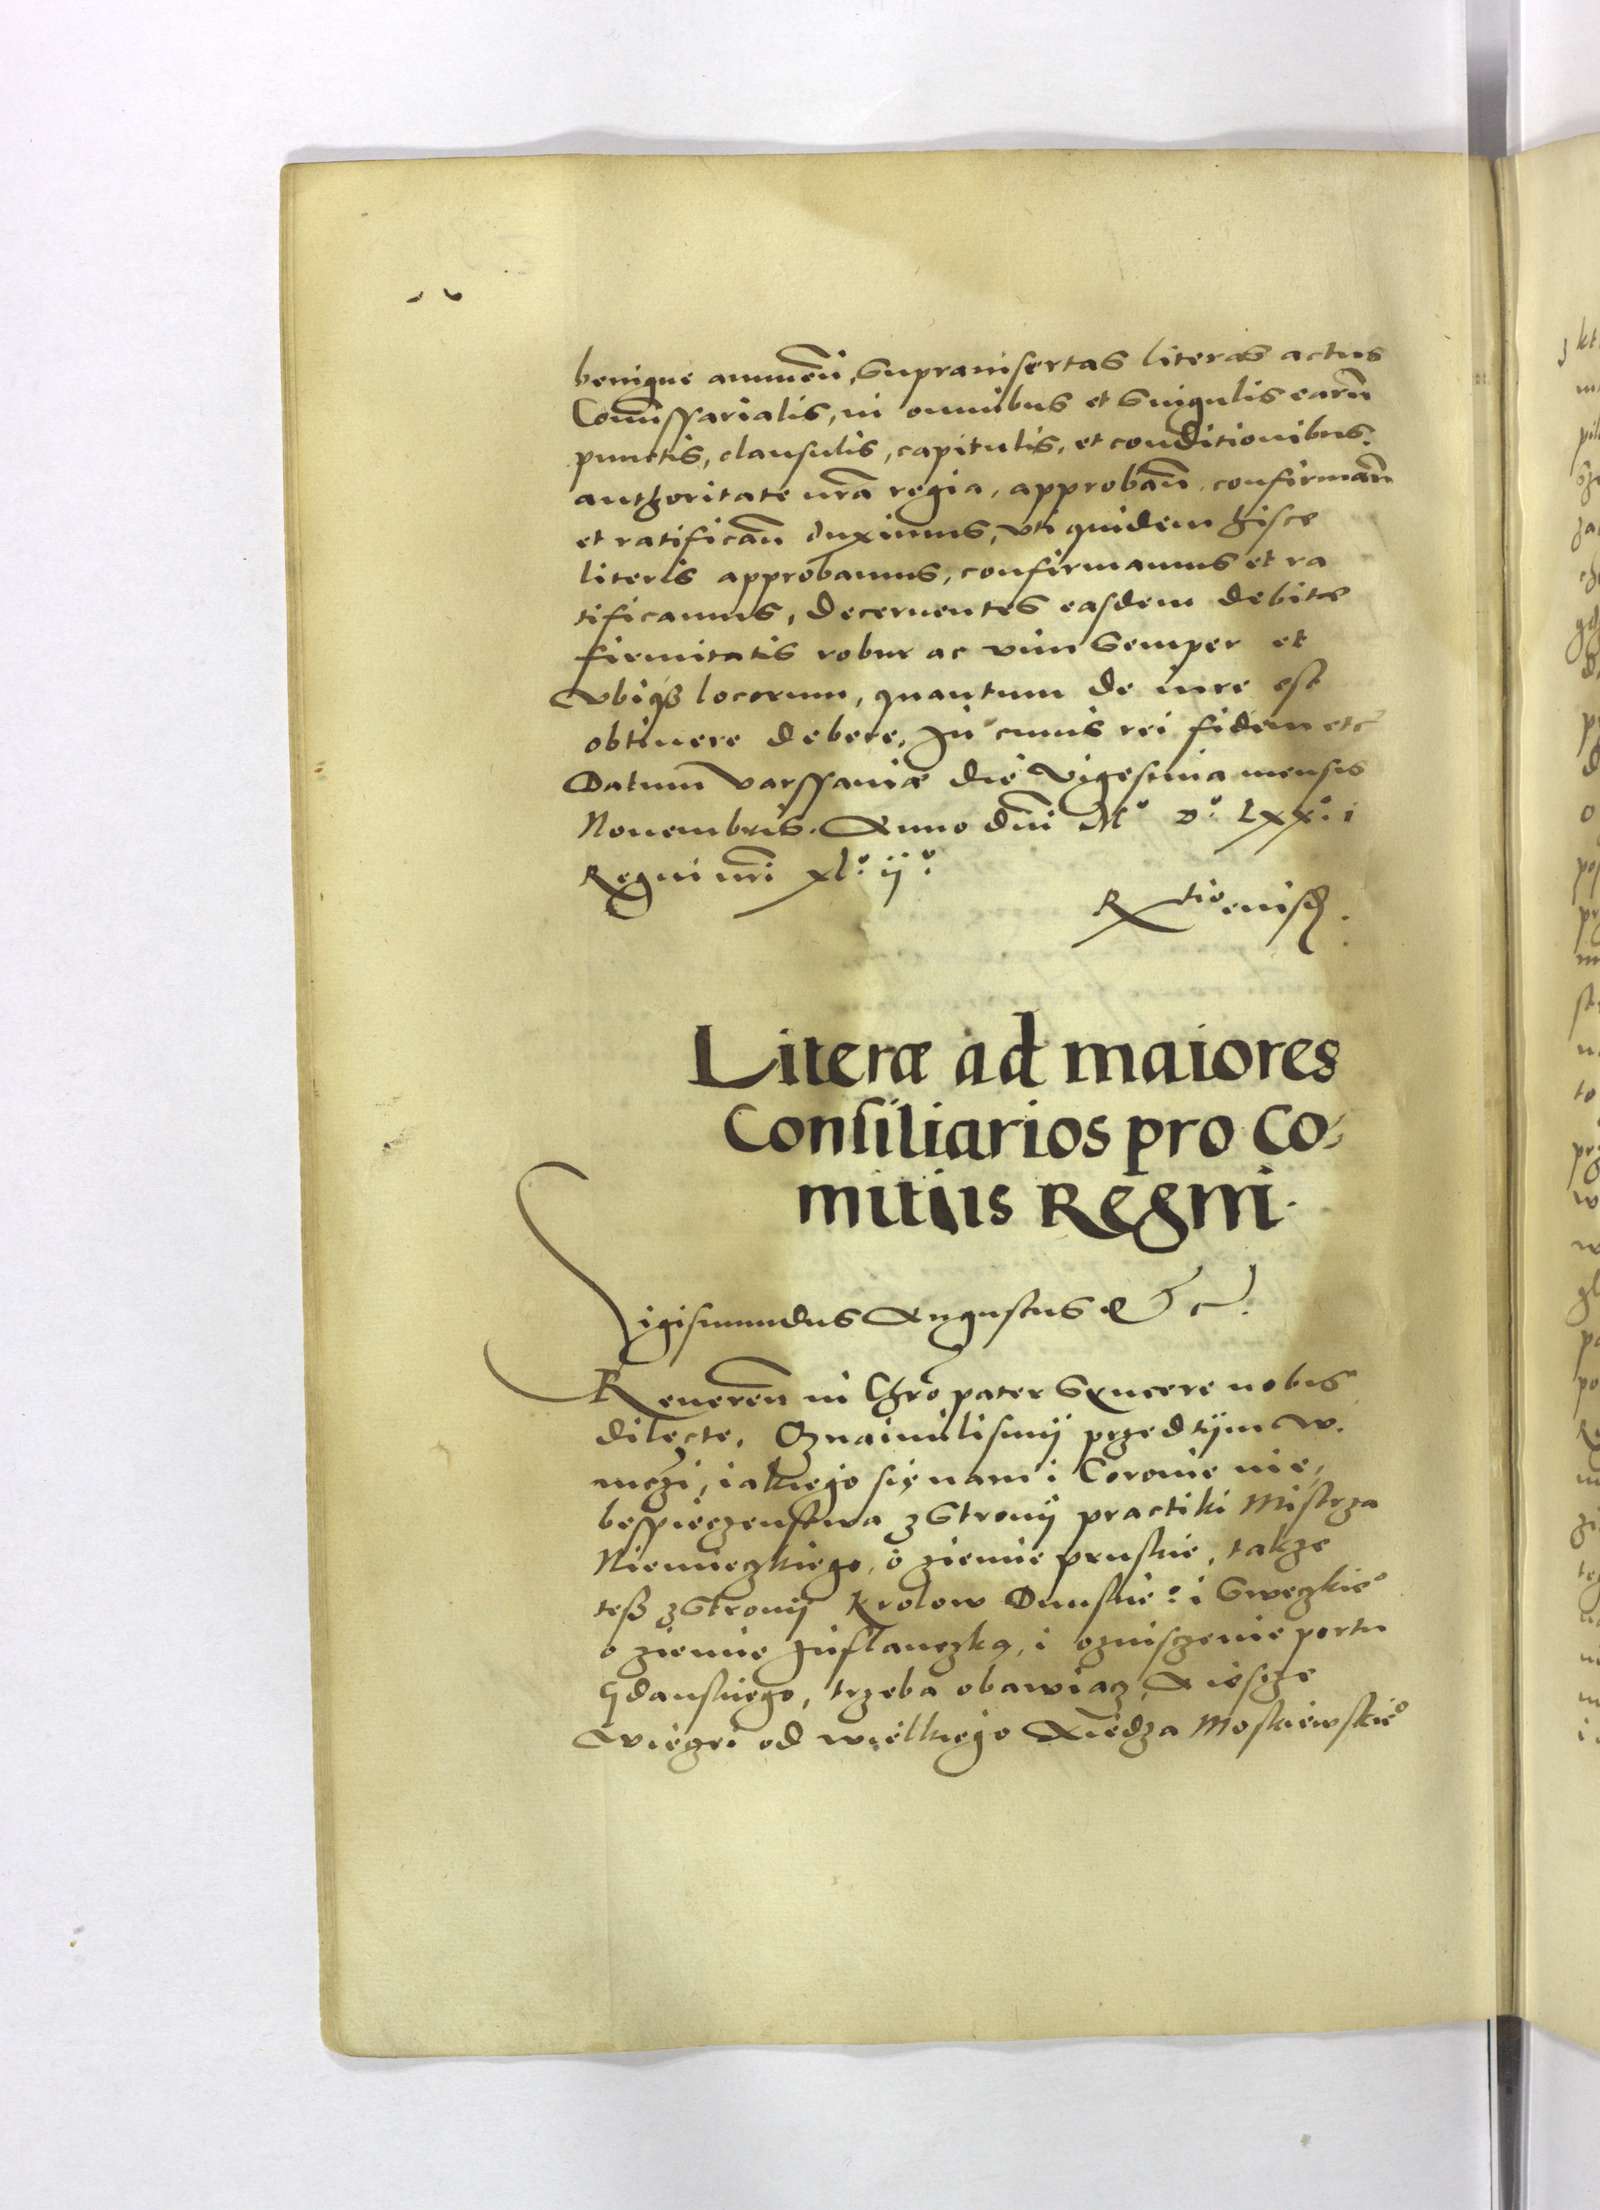 benigne annuen̄, suprainsertas literas actus
Com̄issarialis, in omnibus et singulis earū
punctis, clausulis, capitulis, et conditionibus,
authoritate nrā regia, approban̄, confirman̄
et ratifican̄ duximus, vti quidem hisce
literis approbamus, confirmamus et ra
tificamus, decernentes easdem debitæ
firmitatis robur ac vim semper et
vbiqȝ locorum, quantum de iure est
obtinere debere, In cuius rei fidem etc̄
Datum Varssauiæ die vigesima mensis
Nouembris. Anno dn̄i Mº Dº Lxxº i
Regni nr̄i xlº ijº
Rtio eiusd.
Literæ ad maiores
Consiliarios pro Co-
mitiis Regni.
Sigismundus Augustus &c.
Reueren̄ in Chr̄o pater syncere nobis
dilecte, Oznaimilismÿ przed tÿm w.
mczi, iakiego się nam i Coronie nie,
bespieczenstwa z stronÿ practiki Mistrza
Niemieczkiego, o ziemie pruskie, takze
tesz z stronÿ Krolow Dunskieº i Sweczkieº
o ziemie Inflanczką, i oznisczenie portu
Gdanskiego, trzeba obawiacz, A iescze
więczei od wielkiego Xiedza Moskiewskieº